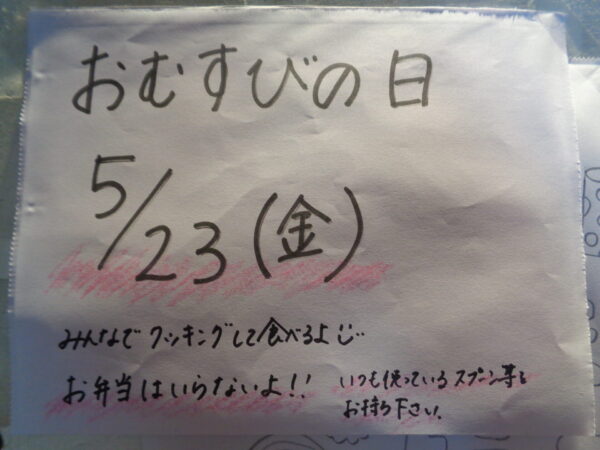 おむすびの日
5/23(金)
みんなでクッキングして食べるよ
お弁当はいらないよ!!
いつも使っているスプーン等を
お持ち下さい。